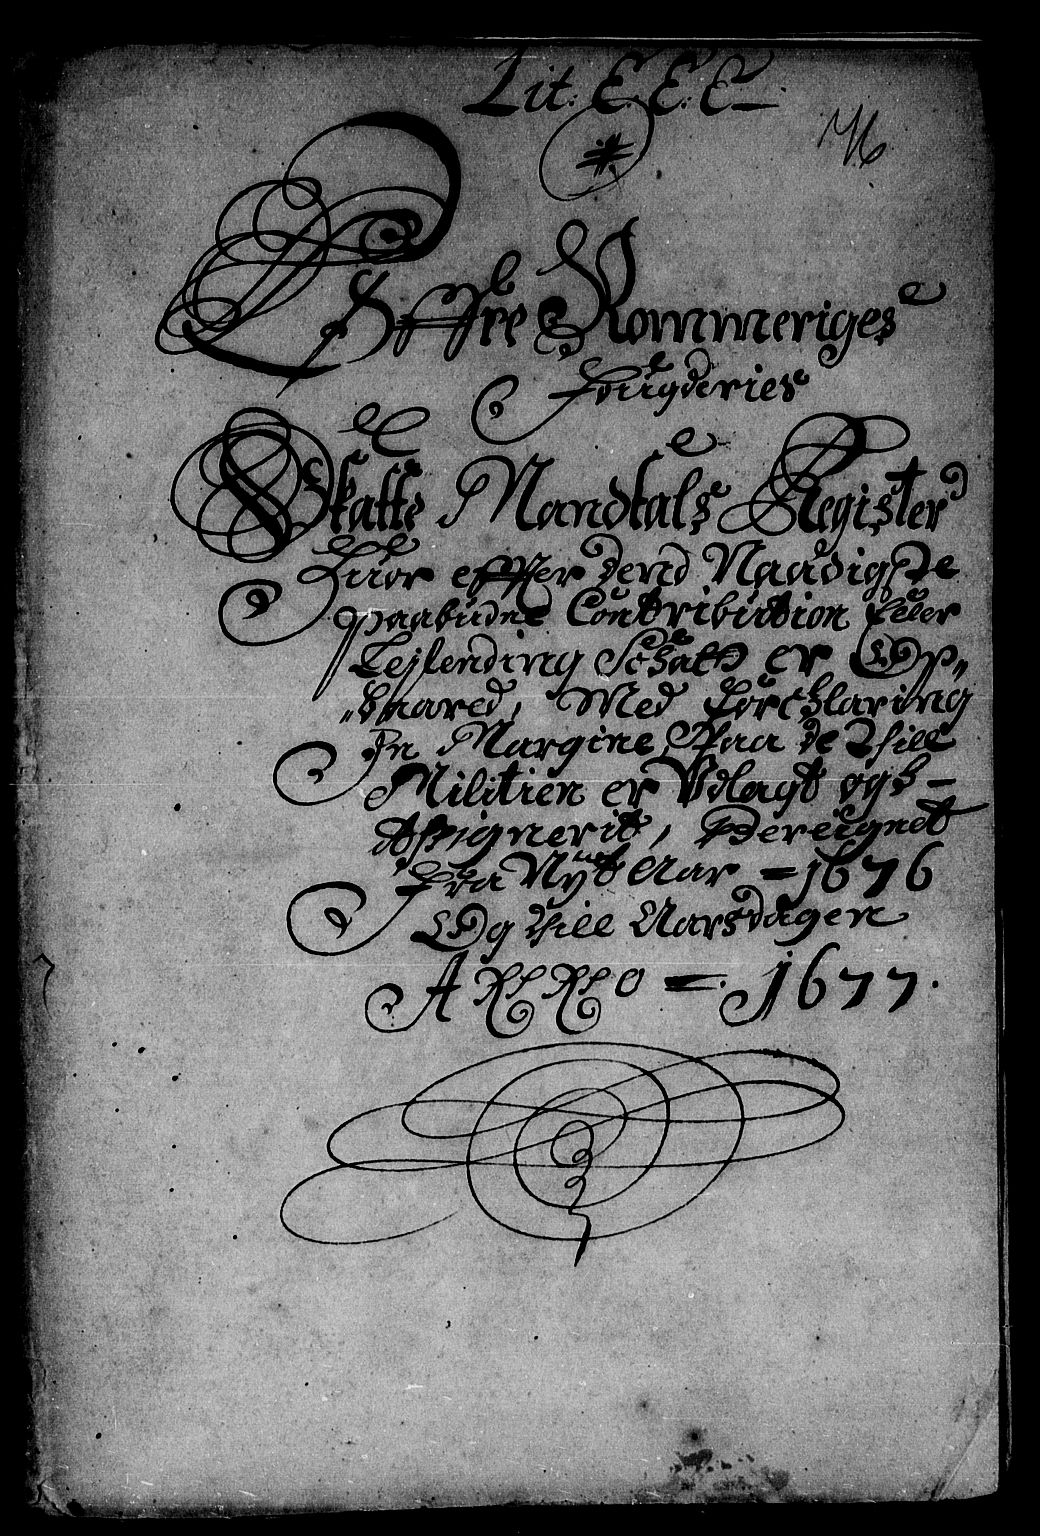 Lit: E: E: E
76
Øffre Rommeriges
Fougderies
Skatte Mandtals Register
Huor effter dend Naadigste
paabudne Contribution Eller
Lejlending Schatt er Op„
„baared, Med forchlaring
In Margine, Paa de Thill
Militien er Udlagt ogs
Assignerit, Bereignet
fra Nÿt Aar = 1676
Og Thill Aarsdagen
Anno = 1677.